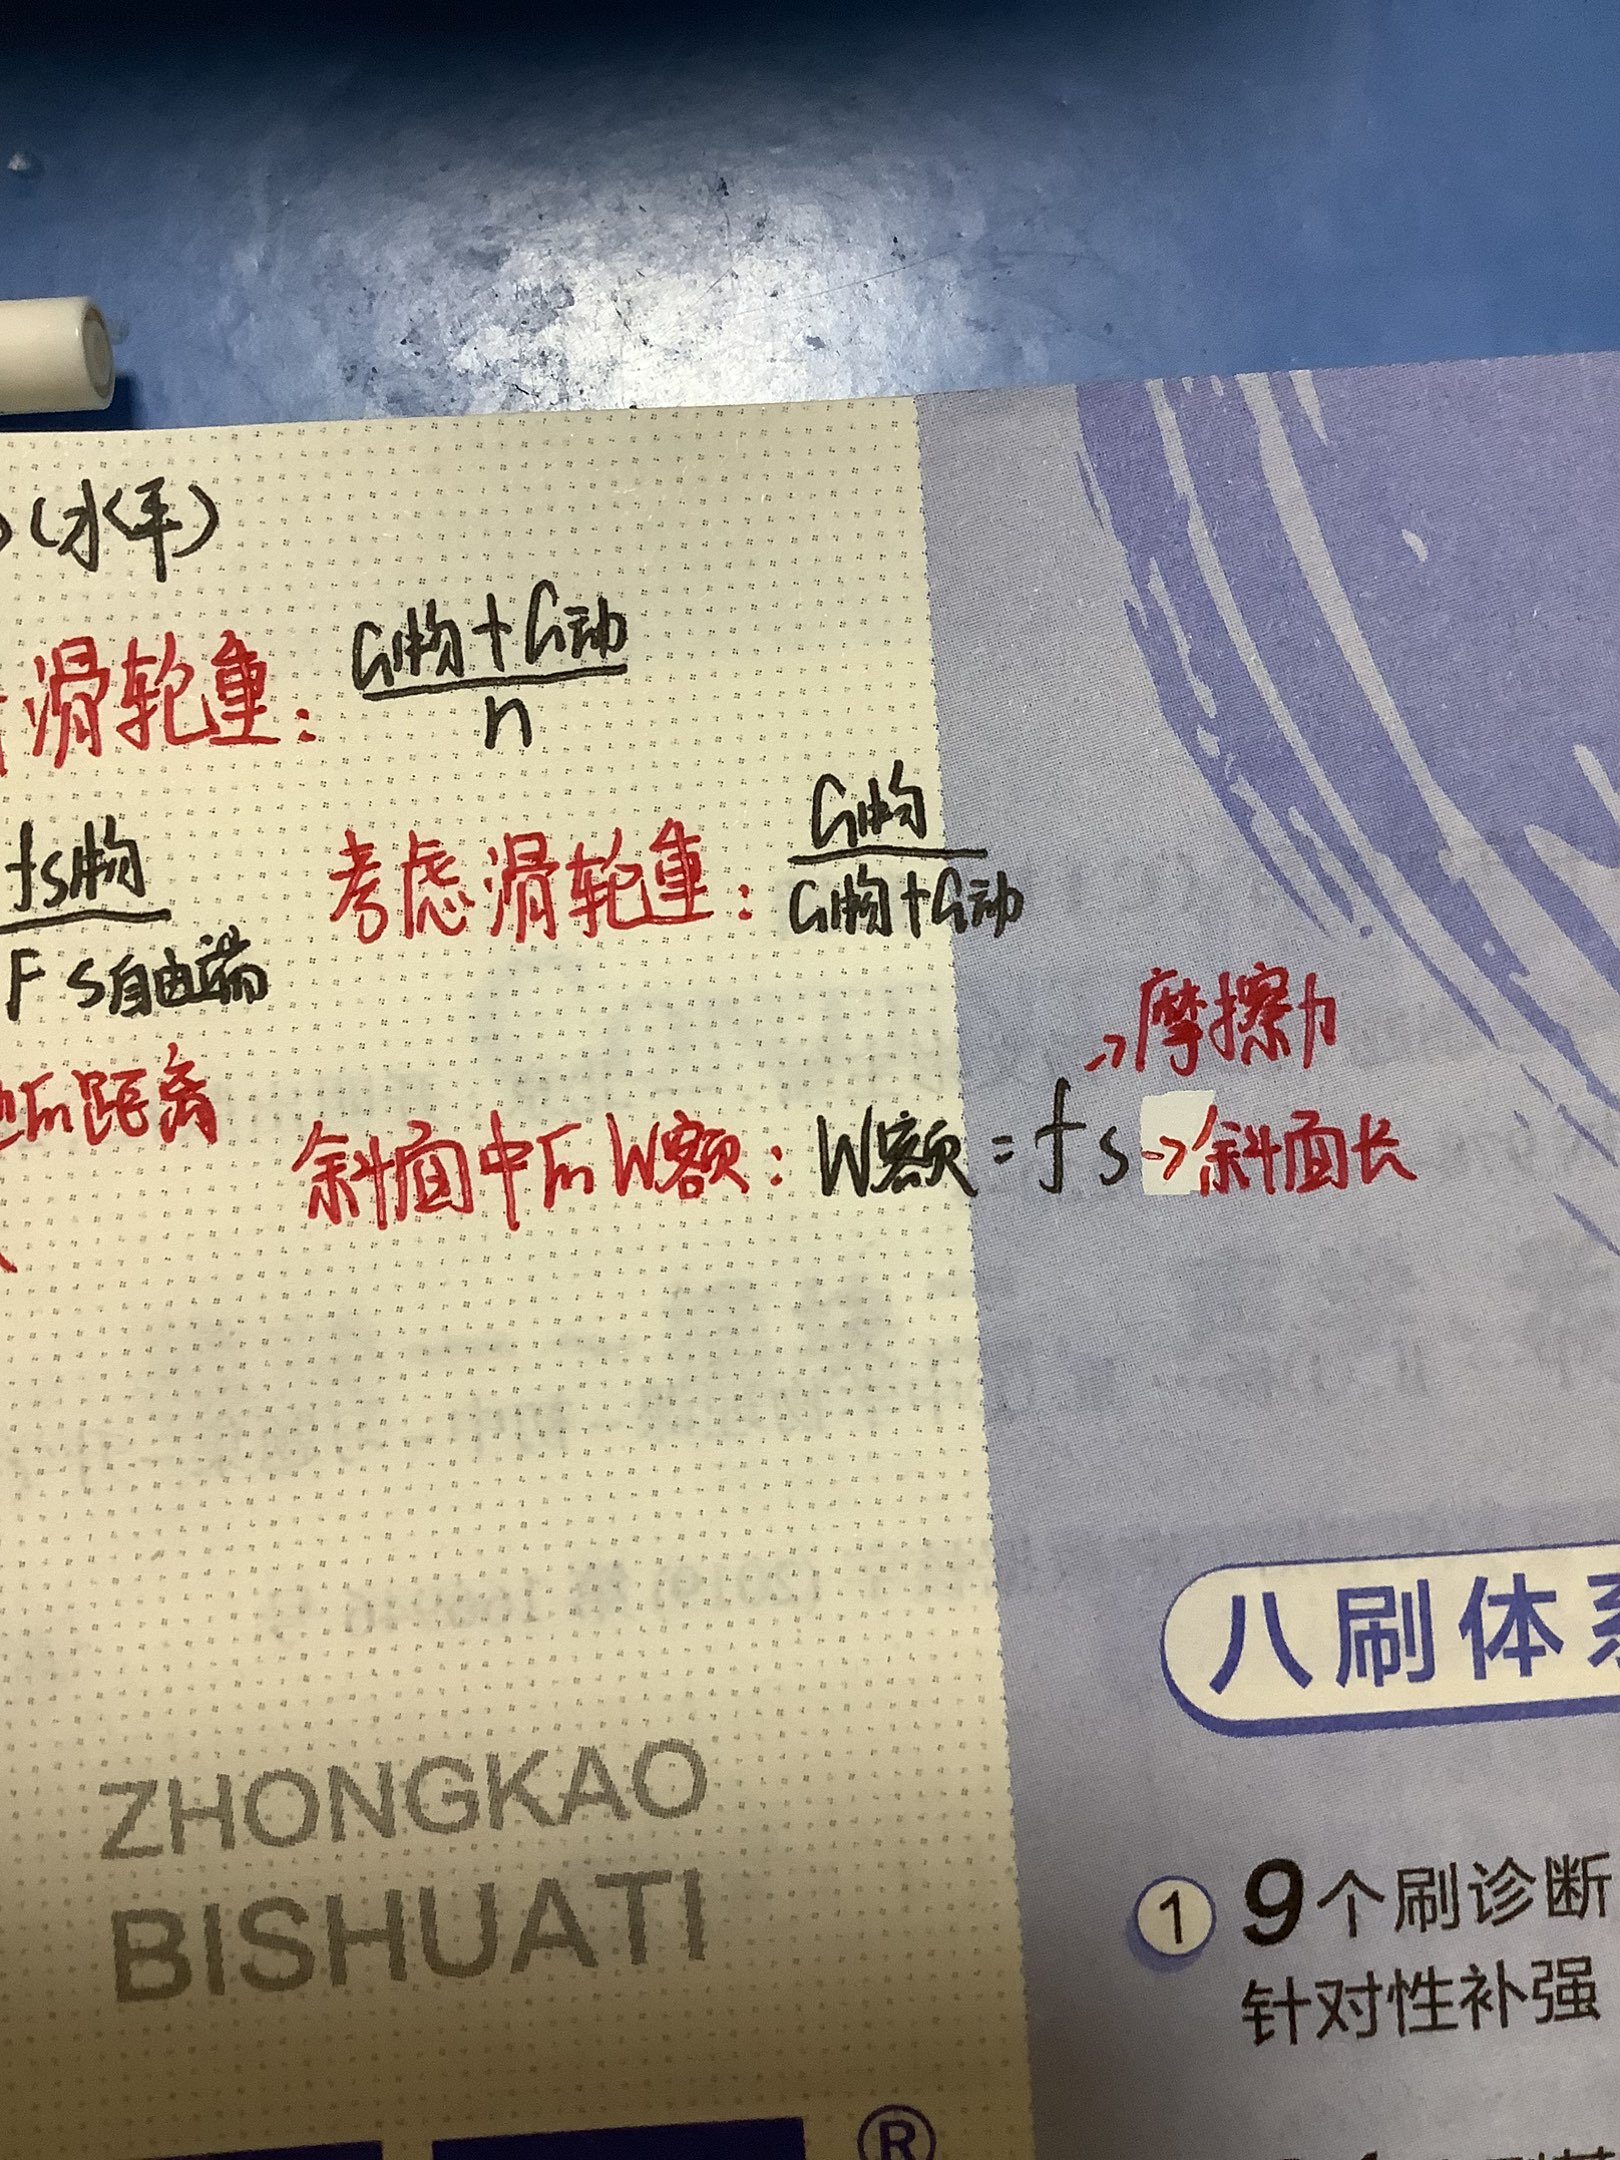 (水平)
滑轮重: G物+G动
n
fs物
F s自由端
考虑滑轮重: G物
G物+G动
距离
→摩擦力
斜面中的W额: W额=fs→斜面长
八刷体
ZHONGKAO
BISHUATI
① 9个刷诊断
针对性补强
®